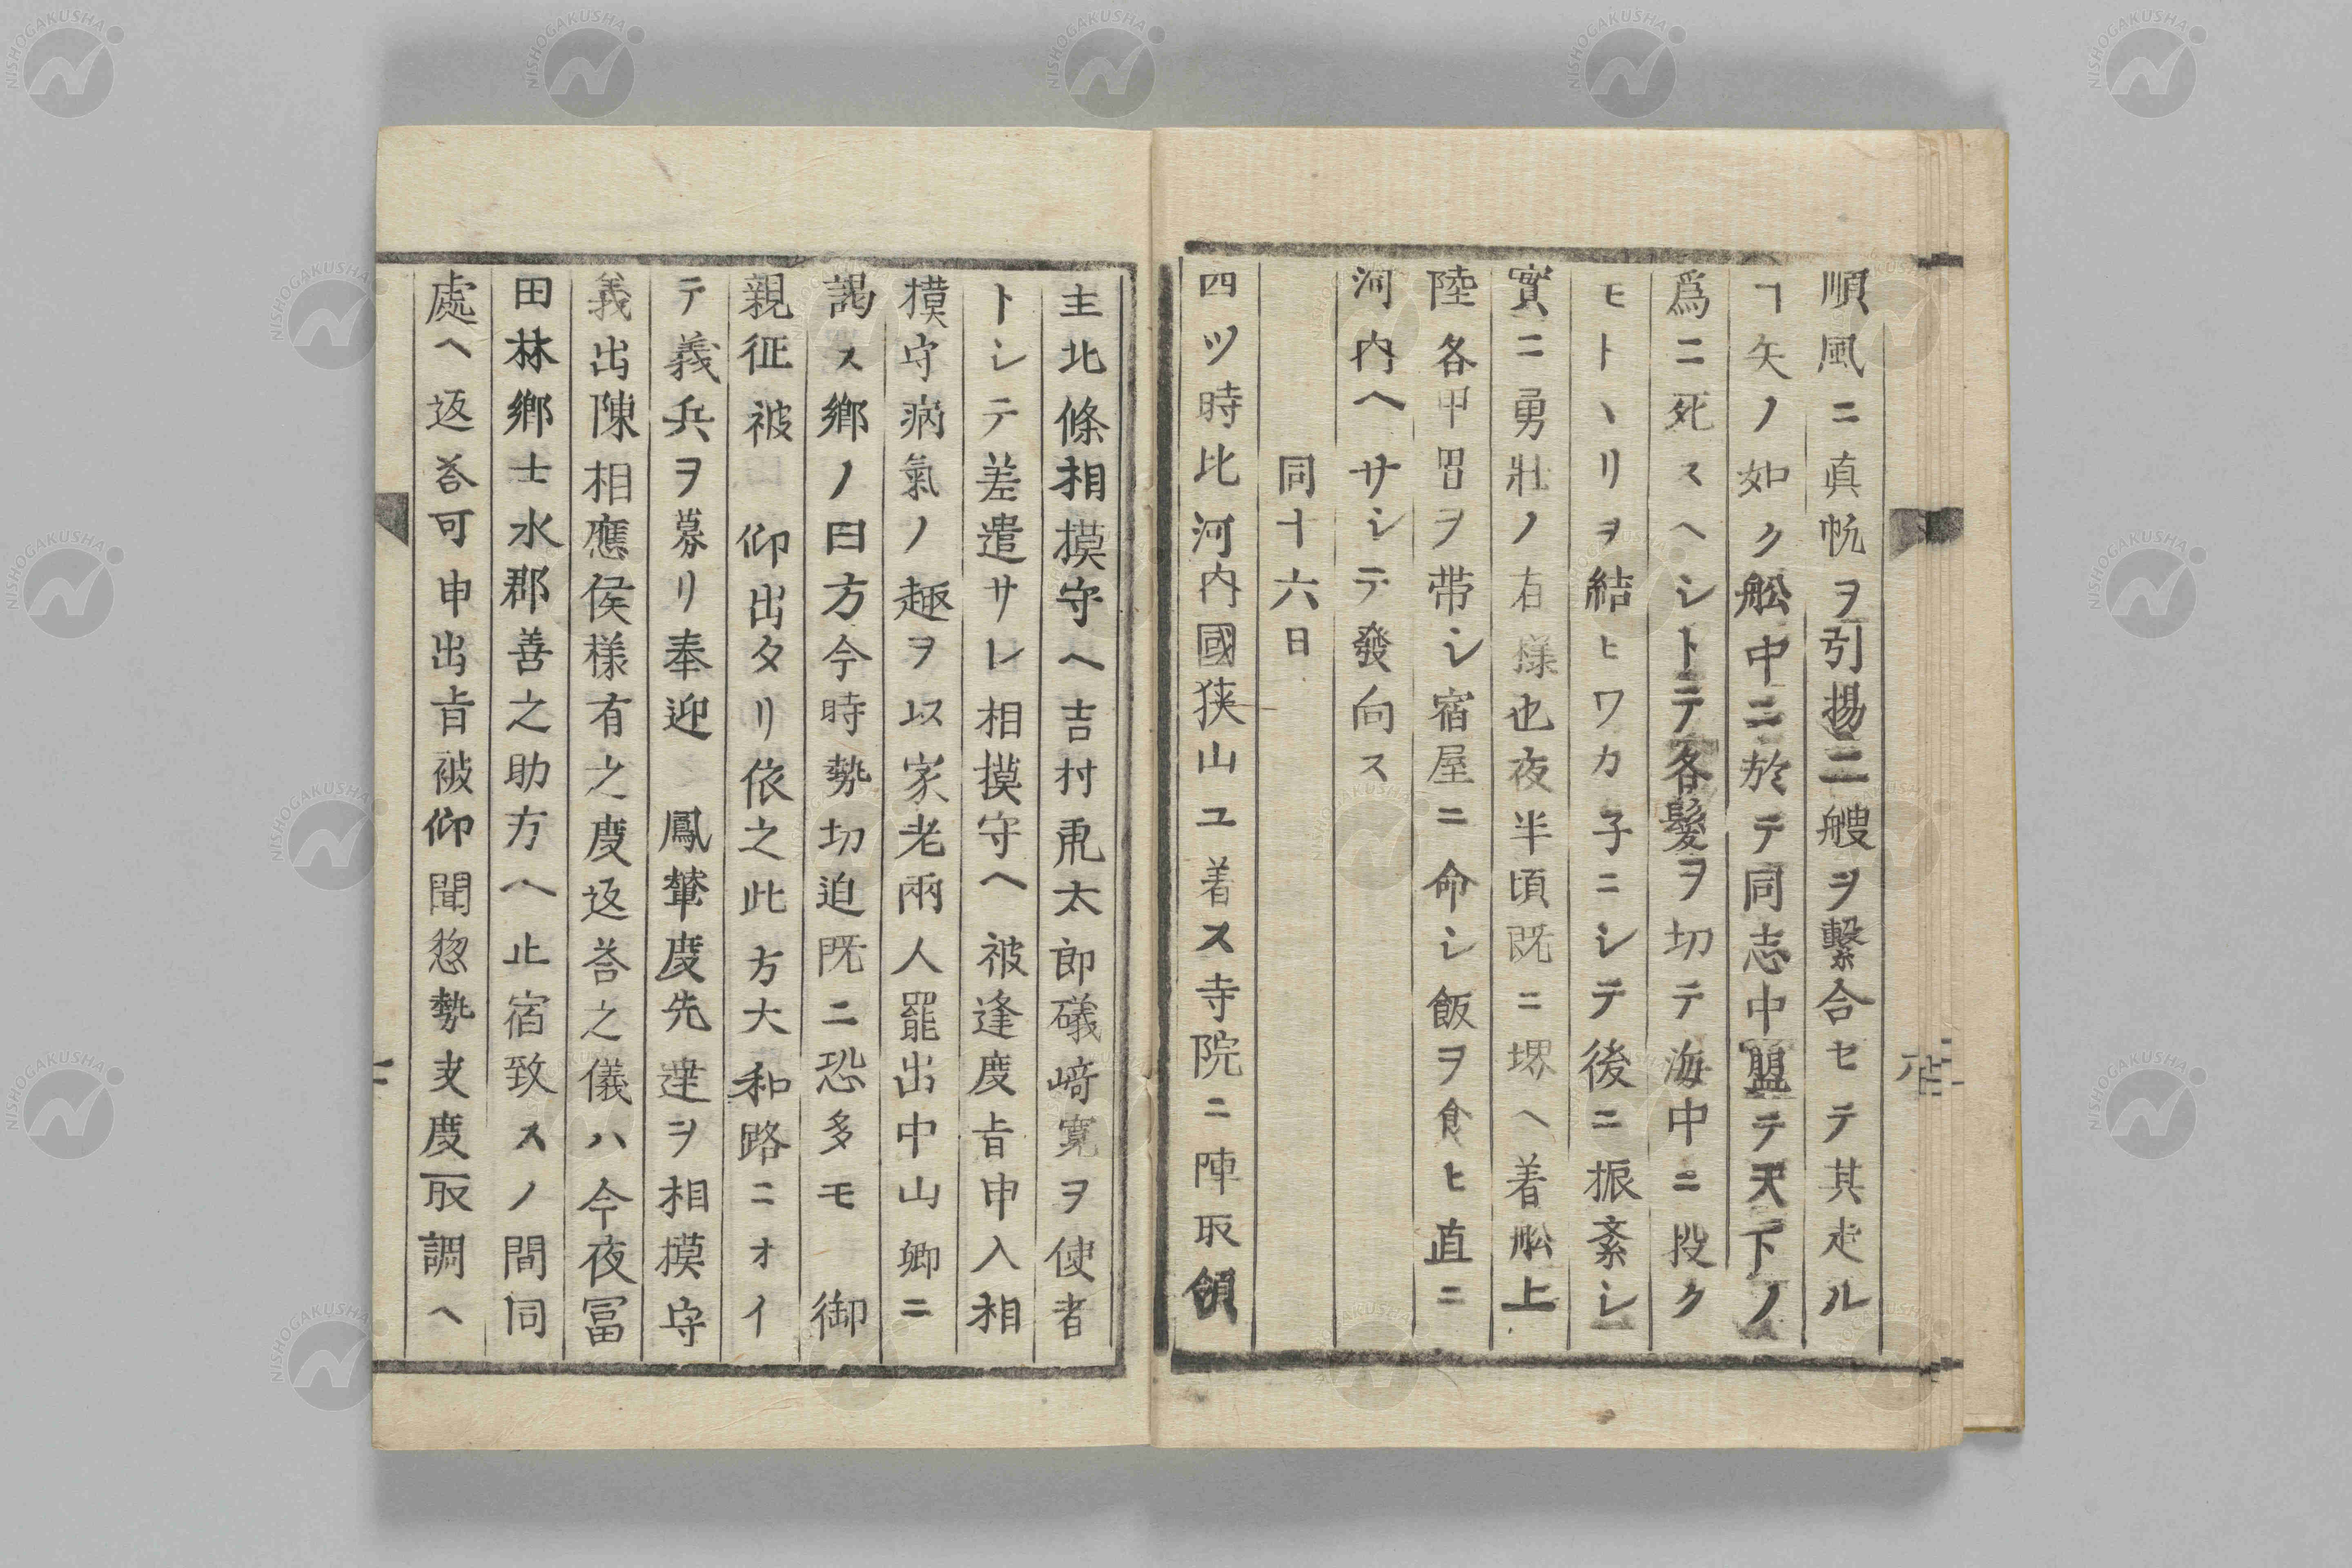 順風ニ真帆ヲ引揚二艘ヲ繋合セテ其走ル
ヿ矢ノ如ク舩中ニ於テ同志中盟テ天下ノ
爲ニ死スヘシトテ各髪ヲ切テ海中ニ投ク
モトヽリヲ結ヒワカ子ニシテ後ニ振紊シ
實ニ勇壯ノ有様也夜半頃既ニ堺ヘ着舩上
陸各甲冑ヲ帯シ宿屋ニ命シ飯ヲ食ヒ直ニ
河内ヘサシテ發向ス
同十六日
四ツ時比河内國狭山ユ着ス寺院ニ陣取領
主北條相摸守ヘ吉村乕太郎礒﨑寛ヲ使者
トシテ差遣サレ相摸守ヘ被逢度旨申入相
摸守病氣ノ趣ヲ以家老兩人罷出中山卿ニ
謁ス鄉ノ曰方今時勢切迫既ニ恐多モ 御
親征被 仰出タリ依之此方大和路ニオイ
テ義兵ヲ募リ奉迎 鳳輦度先達ヲ相摸守
義出陳相應侯様有之度返荅之儀ハ今夜冨
田林鄉士水郡善之助方ヘ止宿致スノ間同
處ヘ返荅可申出旨被仰聞惣勢支度取調ヘ
NISHOGAKUSHA